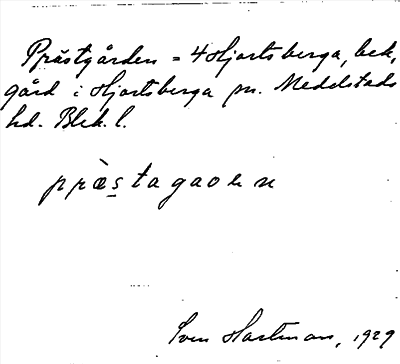 Prästgården = 4 Hjortsberga, bek,
gård i Hjortsberga sn. Medelstads
hd. Blek. l.
præ̀s̱tagaoen
Sven Hartman, 1929